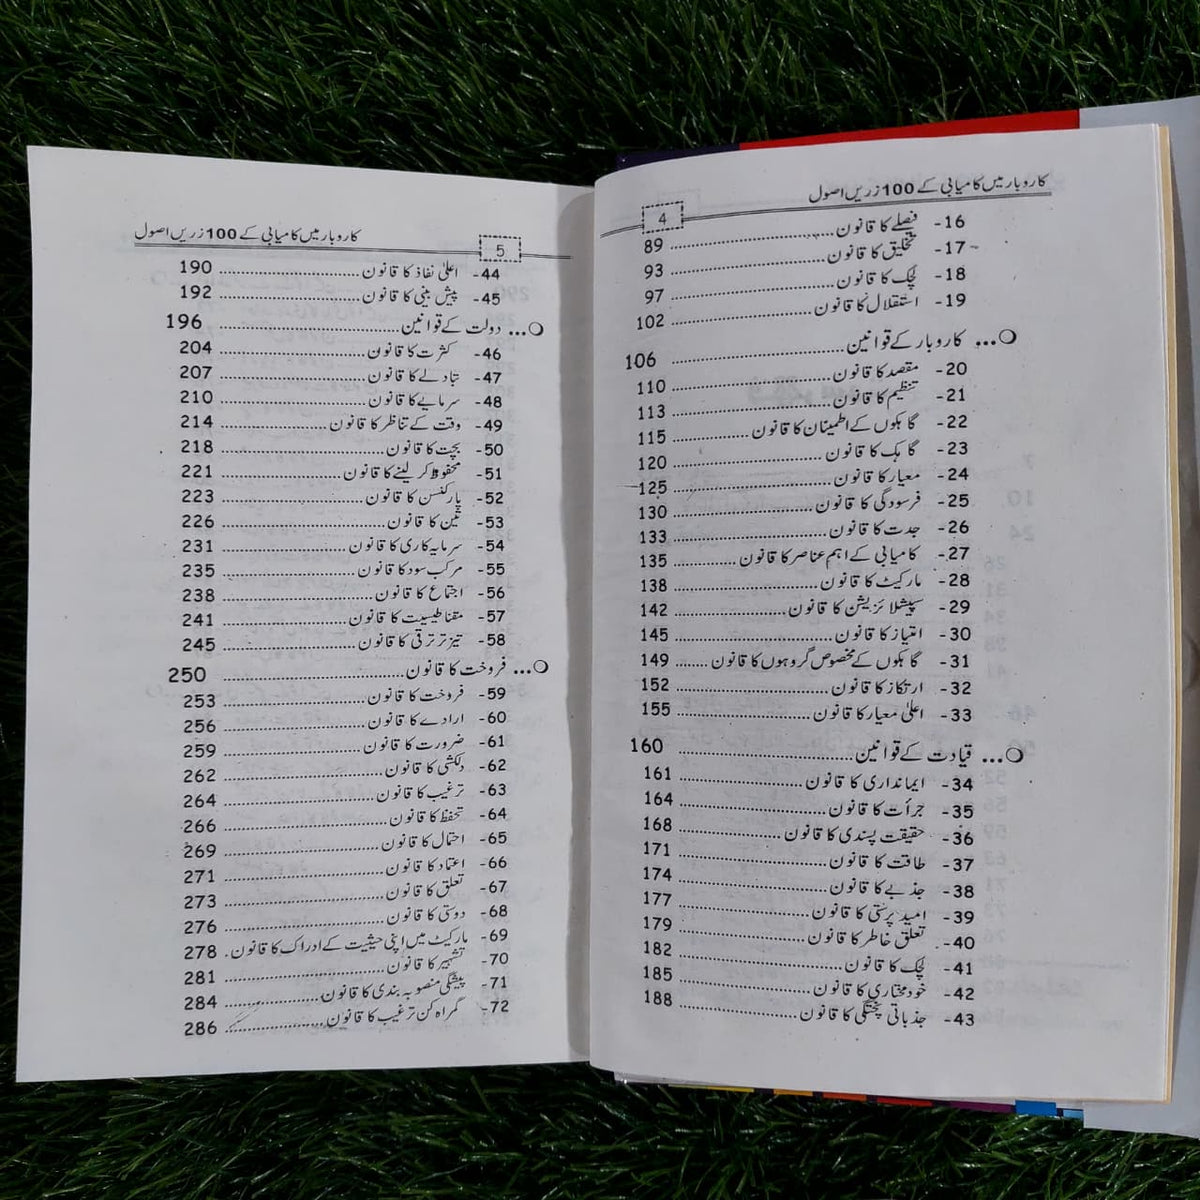 کاروبار میں کامیابی کے 100 زریں اصول
4
16- فیصلے کا قانون 89
17- تخلیق کا قانون 93
18- لچک کا قانون 97
19- استقلال کا قانون 102
... کاروبار کے قوانین 106
20- مقصد کا قانون 110
21- تنظیم کا قانون 113
22- گاہکوں کے اطمینان کا قانون 115
23- گاہک کا قانون 120
24- معیار کا قانون 125
25- فرسودگی کا قانون 130
26- جدت کا قانون 133
27- کامیابی کے اہم عناصر کا قانون 135
28- مارکیٹ کا قانون 138
29- سپیشلائزیشن کا قانون 142
30- امتیاز کا قانون 145
31- گاہکوں کے مخصوص گروہوں کا قانون 149
32- ارتکاز کا قانون 152
33- اعلیٰ معیار کا قانون 155
... قیادت کے قوانین 160
34- ایمانداری کا قانون 161
35- جرأت کا قانون 164
36- حقیقت پسندی کا قانون 168
37- طاقت کا قانون 171
38- جذبے کا قانون 174
39- امید پرستی کا قانون 177
40- تعلق خاطر کا قانون 179
41- لچک کا قانون 182
42- خود مختاری کا قانون 185
43- جذباتی پختگی کا قانون 188
کاروبار میں کامیابی کے 100 زریں اصول
5
44- اعلیٰ نفاذ کا قانون 190
45- پیش بینی کا قانون 192
... دولت کے قوانین 196
46- کثرت کا قانون 204
47- تبادلے کا قانون 207
48- سرمایے کا قانون 210
49- وقت کے تناظر کا قانون 214
50- بچت کا قانون 218
51- محفوظ کر لینے کا قانون 221
52- پارکنسن کا قانون 223
53- تین کا قانون 226
54- سرمایہ کاری کا قانون 231
55- مرکب سود کا قانون 235
56- اجتماع کا قانون 238
57- مقناطیسیت کا قانون 241
58- تیز تر ترقی کا قانون 245
... فروخت کا قانون 250
59- فروخت کا قانون 253
60- ارادے کا قانون 256
61- ضرورت کا قانون 259
62- دلکشی کا قانون 262
63- ترغیب کا قانون 264
64- تحفظ کا قانون 266
65- احتمال کا قانون 269
66- اعتماد کا قانون 271
67- تعلق کا قانون 273
68- دوستی کا قانون 276
69- مارکیٹ میں اپنی حیثیت کے ادراک کا قانون 278
70- تشہیر کا قانون 281
71- پیشگی منصوبہ بندی کا قانون 284
72- گمراہ کن ترغیب کا قانون 286